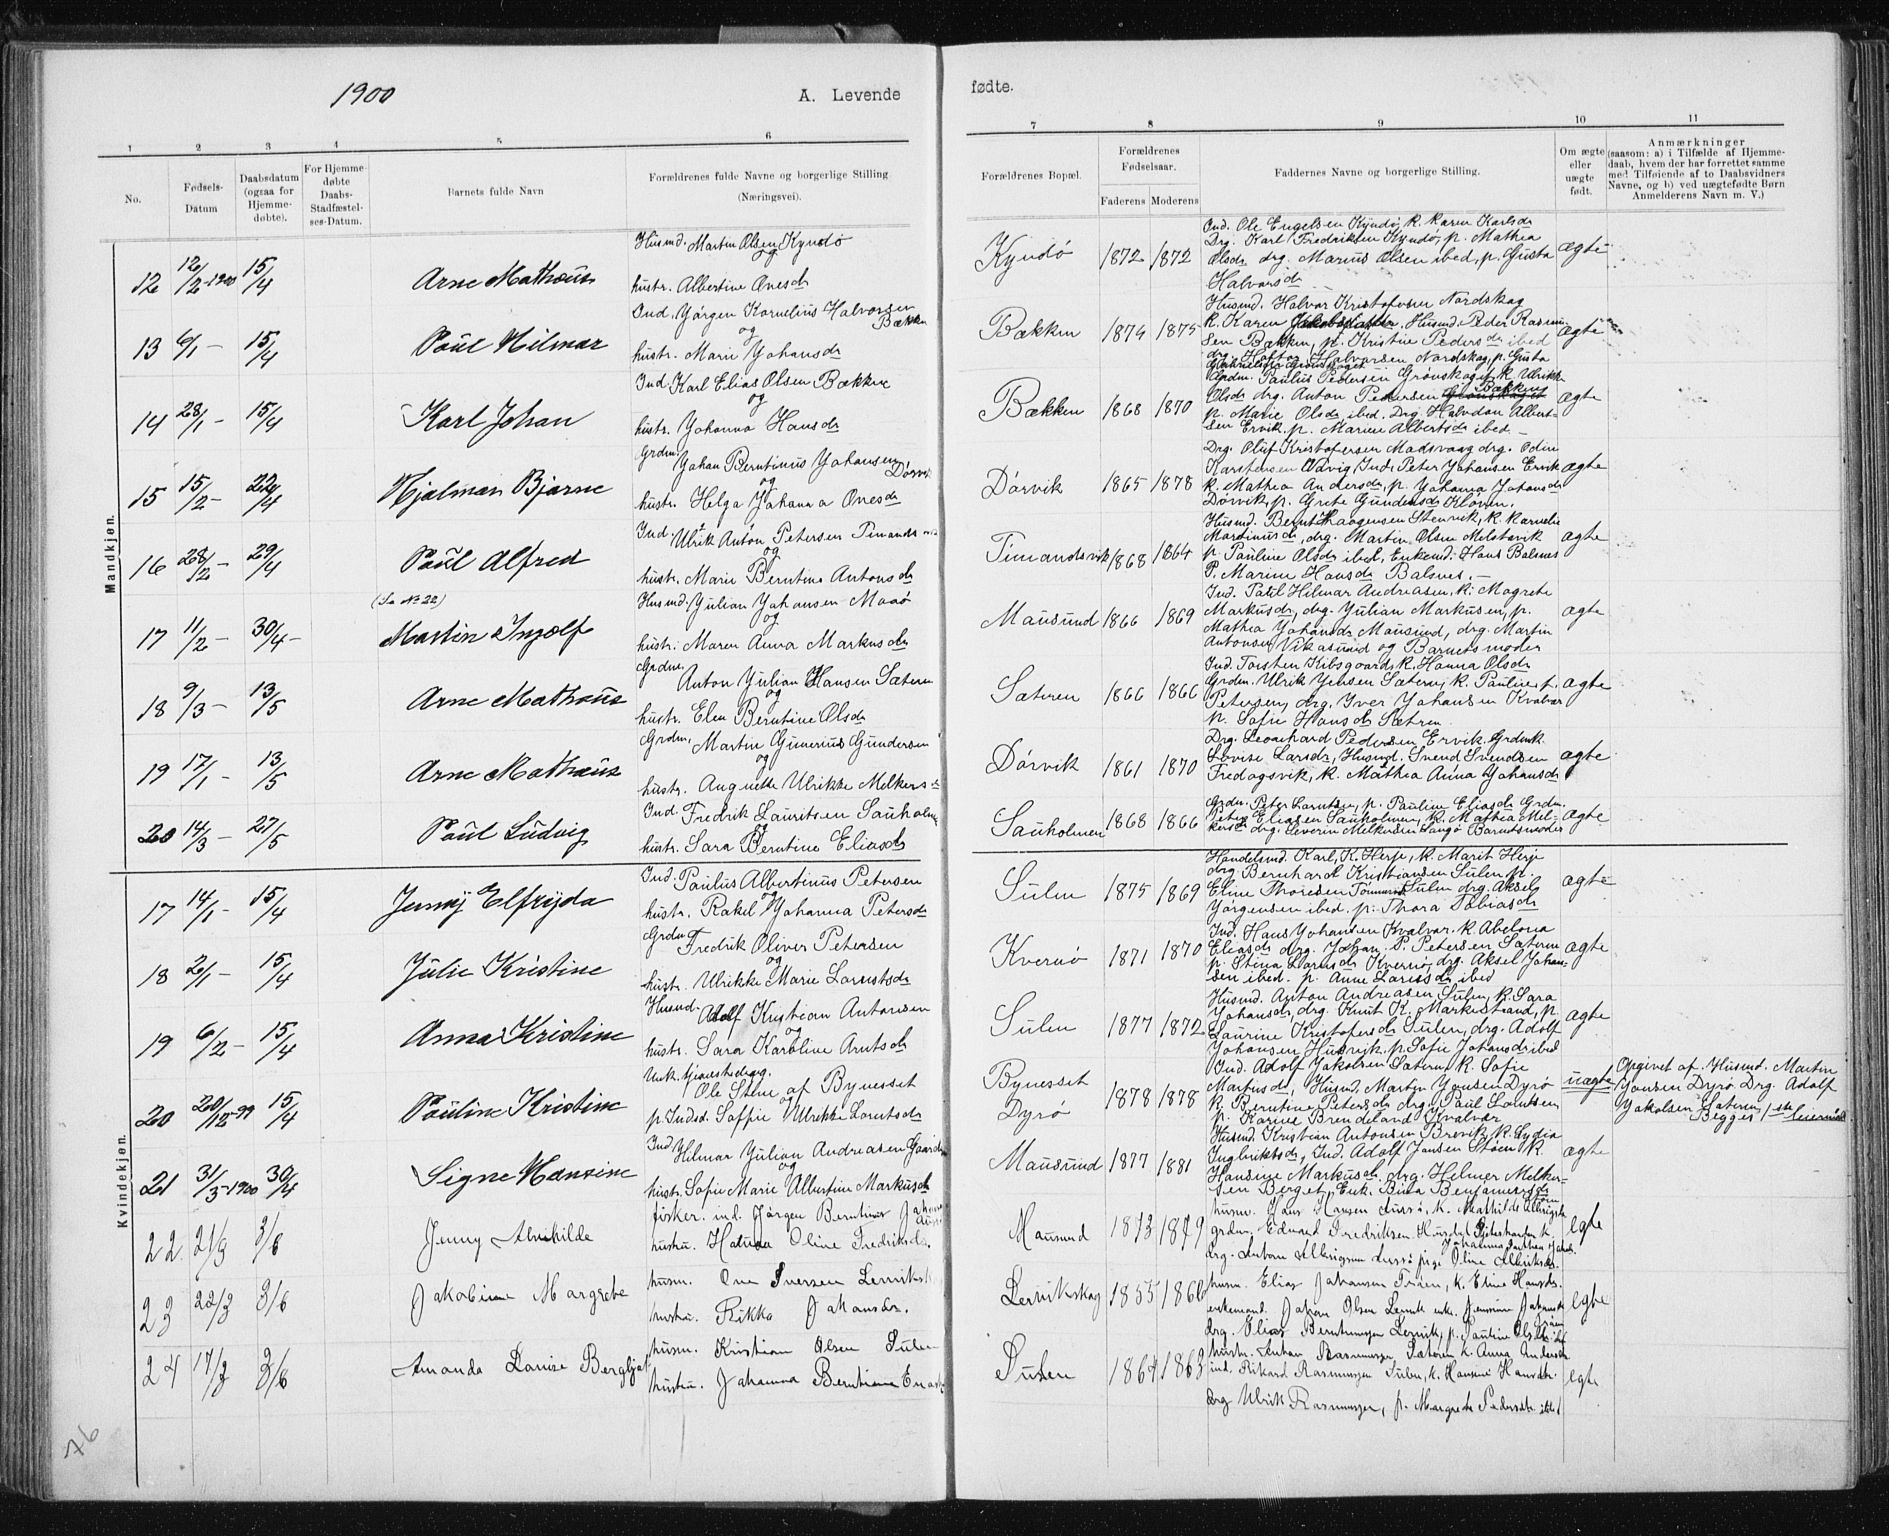 1900
A. Levende
fødte.
1 2 3 4 5 6
7 8 9 10 11
No.
Fødsels-
Datum
Daabsdatum
(ogsaa for
Hjemme-
døbte).
For Hjemme-
døbte
Daabs-
Stadfæstel-
ses-Datum.
Barnets fulde Navn
Forældrenes fulde Navne og borgerlige Stilling
(Næringsvei).
Forældrenes Bopæl.
Forældrenes
Fødselsaar.
Faderens Moderens
Faddernes Navne og borgerlige Stilling.
Om ægte
eller
uægte
født.
Anmærkninger
(saasom: a) i Tilfælde af Hjemme-
daab, hvem der har forrettet samme
med Tilføiende af to Daabsvidners
Navne, og b) ved uægtefødte Børn
Anmelderens Navn m. V.)
Mandkjøn.
12 12/2 1900 15/4 Arne Mathæus
Husmd. Martin Olsen Kyndø
og
hustr. Albertine Ovesdr
Kyndø 1872 1872
Ind. Ole Engelsen Kyndø, k. Karen Karlsdr
Drg. Karl Fredriksen Kyndø, p. Mathea
Olsdr drg. Marius Olsen ibed, p. Gusta
Halvorsdr
ægte
13 6/1 - 15/4 Paul Hilmar
Ind. Jørgen Kornelius Halvorsen
Bækken
og
hustr. Marie Johansdr
Bækken 1874 1875
Husmd. Halvor Kristofersen Nordskag
k. Karen Husmd. Peder Rasmus
sen Bækken, p. Kristine Pedersdr ibed
drg. Halvorsen Nordskag, p. Gusta
ægte
14 28/1 - 15/4 Karl Johan
Ind. Karl Elias Olsen Bækken
og
hustr. Johanna Hansdr
Bækken 1868 1870
Grdm. Paulus Pedersen Grønskaget k. Ulrikke
Olsdr drg. Anton Pedersen Grønskaget Bækken
p. Marie Olsdr ibed. Drg. Halvdan Albert-
sen Ervik, p. Marine Albertsdr ibed
ægte
15 15/2 - 22/4 Hjalmar Bjarne
Grdm. Johan Berntinus Johansen
Dørvik
og
hustr. Helga Johanna Ovesdr
Dørvik 1865 1878
Drg. Oluf Kristofersen Madsvaag drg. Odin
Karstensen Ind. Peter Johansen Ervik
k. Mathea Andersdr, p. Johanna Johansdr
Dørvik, p. Grete Gundersdr Kløven.
ægte
16 28/12 - 29/4 Paul Alfred
Ind. Ulrik Anton Petersen Timandsvik
og
hustr. Marie Berntine Antonsdr
Timandsvik 1868 1864
Husmd. Bernt Haagensen Stenvik, k. Kornelie
Martinusdr, drg. Martin Olsen Melstovik
p. Pauline Olsdr ibed, Enkemd. Hans Balsnes
P. Marine Hansdr Balsnes.
ægte
(Se No 22)
17 11/2 - 30/4 - Martin Ingolf
Husmd. Julian Johansen Maaø
og
hustr. Maren Anna Markusdr
Mausund 1866 1869
Ind. Paul Hilmar Andreasen, k. Magrete
Markusdr, drg. Julian Markusen, p.
Mathea Johansdr Mausund, drg. Martin
Antonsen Vikasund og Barnets moder
ægte
18 9/3 - 13/5 Arne Mathæus
Grdm. Anton Julian Hansen Sæteren
og
hustr. Elen Berntine Olsdr
Sæteren 1866 1866
Ind. Torsten Kibsgaard, k. Hanna Olsdr
Grdm. Ulrik Jensen Sæteren, k. Pauline, p.
Petersen, drg. Iver Johansen Kvalvær
p. Sofie Hansdr Sætren
ægte
19 17/1 - 13/5 Arne Mathæus
Grdm. Martin Gunerius Gundersen
og
hustr. Augnette Ulrikke Melkersdr
Dørvik 1861 1870
Drg. Leonhard Pedersen Ervik Grdmk.
Lovise Larsdr, Husmd. Svend Svendsen
Fredagsvik, k. Mathea Anna Johansdr
ægte
20 14/3 - 27/5 Paul Ludvig
Ind. Fredrik Lauritsen Sauholmen
og
hustr. Sara Berntine Eliasdr
Sauholmen 1868 1866
Grdm. Peter Larntsen, p. Pauline Eliasdr Grdm.
Peter Eliasen Sauholmen, k. Mathea Mel-
kersdr drg. Severin Melkersen Barnets moder
ægte
Kvindekjøn.
17 14/1 - 15/4 Jenny Elfryda
Ind. Paulus Albertinus Petersen
og
hustr. Rakel Johanna Petersdr
Sulen 1875 1869
Handelsmd. Karl, K. Herje, k. Marit Herje
drg. Bernhard Kristiansen Sulen p.
Eline Thoresen Sulen drg. Aksel
Jørgensen ibed. p. Thora Tobiasdr
ægte
18 2/1 - 15/4 Julie Kristine
Grdm. Fredrik Oliver Petersen
og
hustr. Ulrikke Marie Larntsdr
Kvernø 1871 1870
Ind. Hans Johansen Kvalvær. k. Abelona
Eliasdr drg. Johan P. Petersen Sæteren
p. Stina Larsdr Kvernø, drg. Aksel Johan-
sen ibed. p. Anne Larssdr ibed
ægte
19 6/2 - 15/4 Anna Kristine
Husmd. Adolf Kristian Antonsen
og
hustr. Sara Karoline Arntsdr
Sulen 1877 1872
Husmd. Anton Andreasen Sulen, k. Sara
Johansdr, drg. Knut K. Markestrand, p.
Laurine Kristofersdr Sulen, drg. Adolf
Johansen Husvik p. Sofie Johansdr ibed
ægte
20 20/12-99 15/4 Pauline Kristine
Unk. Tjenestedreng.
Ole Stene af Bynesset
og
p. Indsd. Soffie Ulrikke Larntsdr
Bynesset
Dyrø
1878 1878
Ind. Adolf Jakolsen Sæteren k. Sofie
Martusdr, Husmd. Martin Jonsen Dyrø
k. Berntine Petersdr drg. Paul Larntsen
p. Karine Brendeland Kvalvær
uægte
Opgivet af Husmd. Martin
Jonsen Dyrø Drg. Adolf
Jakolsen Sæteren
Begges 1ste leiermaal
21 31/3-1900 30/4 Signe Hansine
Ind. Hilmar Julian Andreasen Gaarden
og
hustr. Sofie Marie Albertine Markusdr
Mausund 1877 1881
Husmd. Kristian Antonsen Brevik, k. Lydia
Ingbriktsdr, Ind. Adolf Jansen Støen k.
Hansine Markusdr. drg. Hilmer Melker-
sen Berget, Enk. Bina Benjaminsdr
ægte
22 21/3 3/6 Jenny Alvhilde
fisker. ind. Jørgen Berntinus
hustru. Hatuda Oline Fredriksdr.
Mausund 1873 1879
husm. Hans Hansen k. Mathilde
grdm. Edvard Fredriksen
drg. Anton
egte
23 22/3 3/6 Jakobine Margrete
husm. Ove Iversen Lervikskag
hustru. Rikka Johansdr.
Lervikskag 1855 1860
husm. Elias Johansen k. Eline Hansdr.
enkemand. Johan Olsen Lervik enke.
drg. Elias Berntsen Lervik, p. Pauline
egte
24 17/3 3/6 Amanda Lovise Bergljot
husm. Kristian Olsen Sulen
hustru. Johanna Berntine
Sulen 1864 1863
husm. Johan Rasmussen Sæteren k. Anna Andersdr
ind. Rikard Rasmussen Sulen, k. Hansine Hansdtr.
drg Ulrik Rasmussen, p. Margrete Pedersdr. ibd.
egte
76